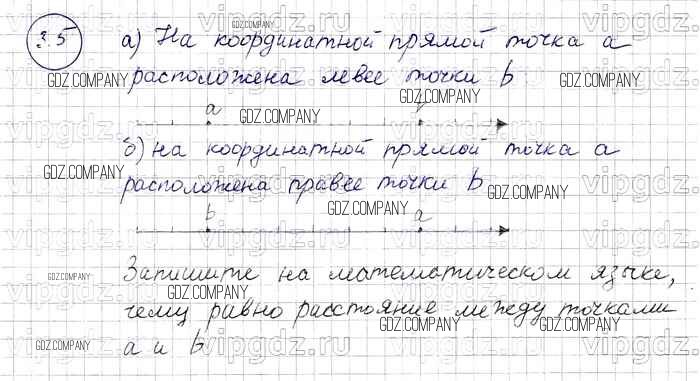 3.5 а) На координатной прямой точка a
расположена левее точки b
a
б) на координатной прямой точка a
расположена правее точки b
b a
Запишите на математическом языке,
чему равно расстояние между точками
a и b
GDZ.COMPANY
vipgdz.ru